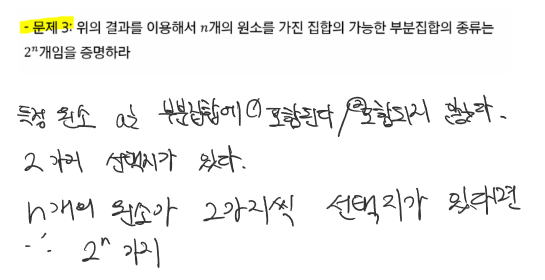 - 문제 3: 위의 결과를 이용해서 n개의 원소를 가진 집합의 가능한 부분집합의 종류는
2ⁿ개임을 증명하라
특정 원소 a는 부분집합에 ① 포함된다 / ② 포함되지 않는다.
2가지 선택지가 있다.
n개의 원소가 2가지씩 선택지가 있다면
∴ 2ⁿ 가지